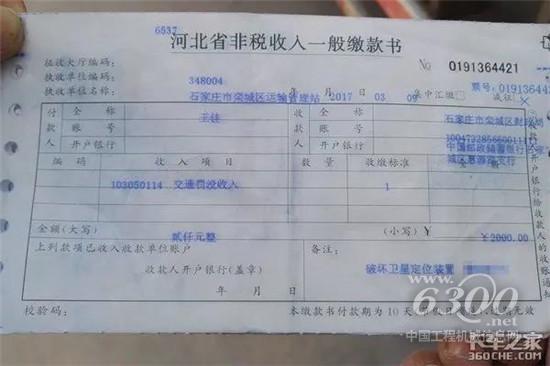 6537
河北省非税收入一般缴款书
征收大厅编码:
No 0191364421
执收单位编码: 348004
票号: 0191364421
执收单位名称: 石家庄市栾城区运输管理站 2017 年 03 月 09 日 集中汇缴□ 减征☒
付款人 全称 收款人 全称 石家庄市栾城区财政局
账号 账号
开户银行 开户银行
编码 收入项目 数量 收缴标准 金额
103050114 交通罚没收入 1
金额(大写) 贰仟元整 (小写)¥ ¥2000.00
上列款项已收入收款单位账户
备注:
收款人开户银行(盖章)
破坏卫星定位装置
年 月 日
校验码:
本缴款书付款期为10天
开户银行给收款人的收账通知
6300.net
中国工程机械信息网
卡车之家
360CHE.COM